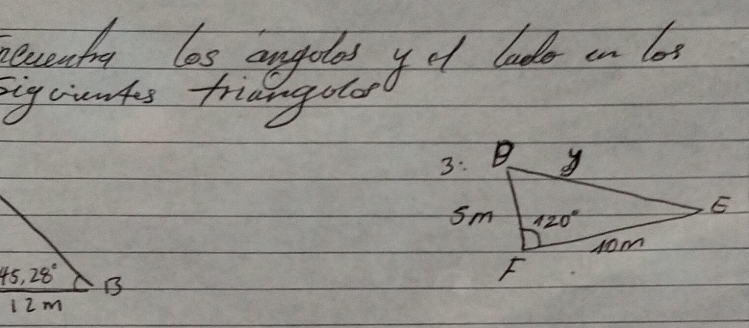 ncuentra los ángulos y el lado en los
siguientes triángulos
3: D y
5m 120° E
10m
F
45,28° B
12m